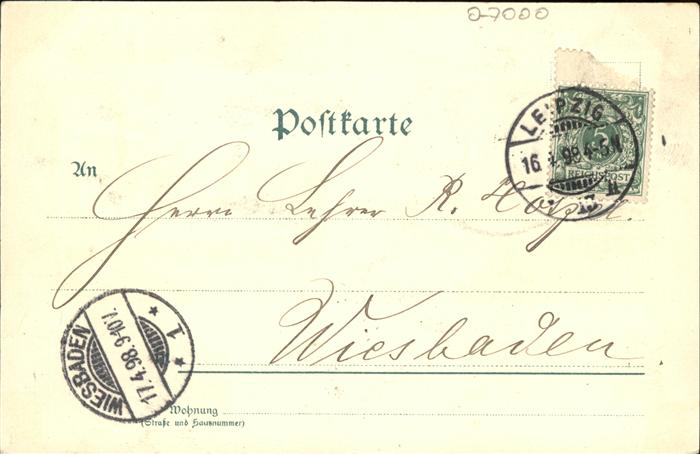 0-7000
Postkarte
LEIPZIG
16. 4. 98. 4-5 N
13
5
REICHSPOST
An
Herrn Lehrer R.
Wiesbaden
WIESBADEN
17.4.98 9-10 V.
* 1 *
Wohnung
(Straße und Hausnummer)